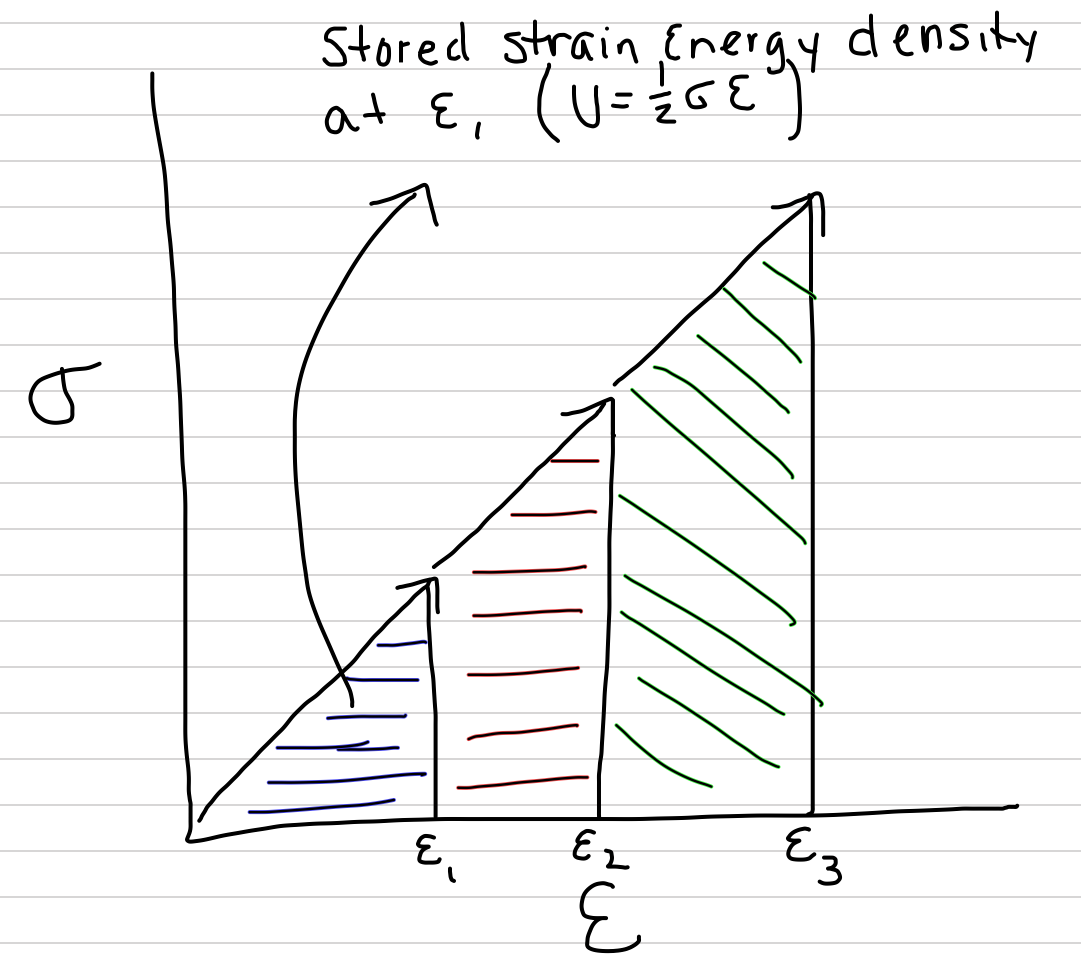 Stored strain Energy density
at ε₁ (U = ½σε)
σ
ε₁ ε₂ ε₃
ε